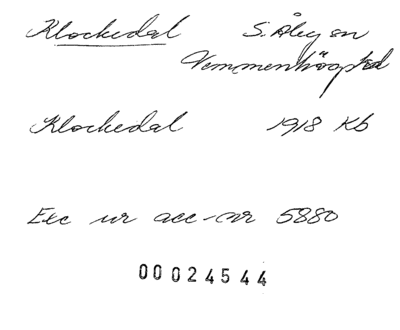 Klockedal S. Åby sn
Vemmenhögs hd
Klockedal 1918 Kb
Exc ur acc-nr 5880
00024544